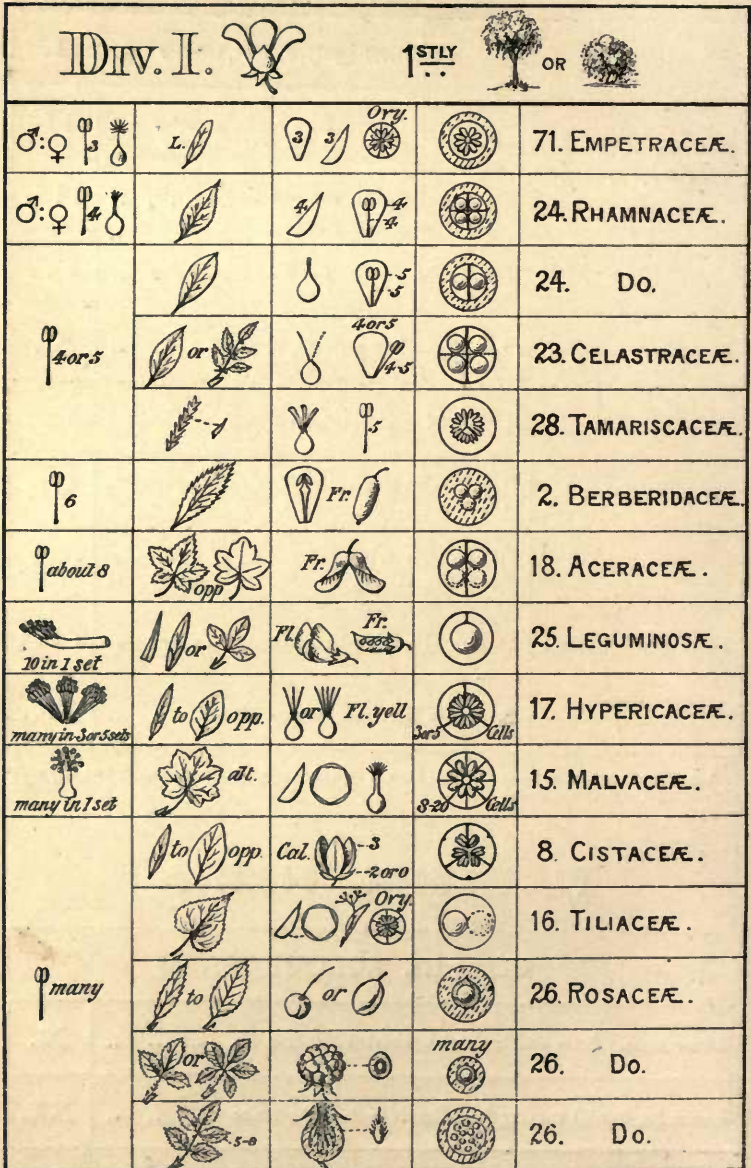 DIV. I. 1STLY OR
♂:♀ 3 L. 3 3 Ovy. 71. EMPETRACEÆ.
♂:♀ 4 4 4 4 24. RHAMNACEÆ.
5 5 24. Do.
4 or 5 or 4 or 5 4-5 23. CELASTRACEÆ.
5 28. TAMARISCACEÆ.
6 Fr. 2. BERBERIDACEÆ.
about 8 opp Fr. 18. ACERACEÆ.
10 in 1 set or Fl. Fr. 25. LEGUMINOSÆ.
many in 3 or 5 sets to opp. or Fl. yell 3 or 5 Cells 17. HYPERICACEÆ.
many in 1 set alt. 8-20 Cells 15. MALVACEÆ.
to opp. Cal. 3 2 or 0 8. CISTACEÆ.
Ovy. 16. TILIACEÆ.
many to or 26. ROSACEÆ.
or many 26. Do.
5-8 26. Do.